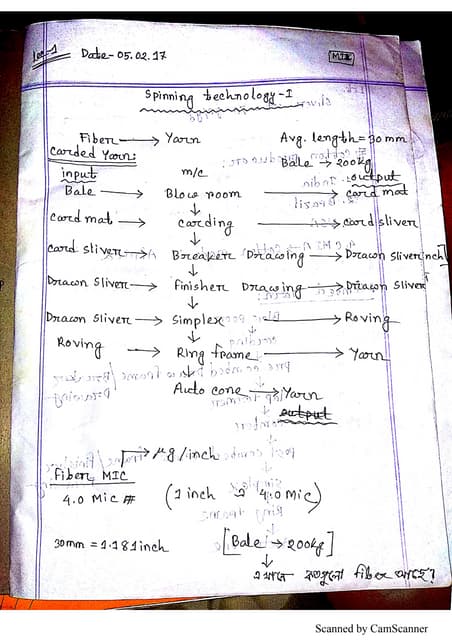 Lec-1 Date- 05.02.17
Spinning technology-I
Fiber → Yarn Avg. length = 30 mm
Carded Yarn: Bale → 200kg
input m/c output
Bale → Blow room → card mat
card mat → carding → card sliver
card sliver → Breaker Drawing → Drawn Sliver
Drawn Sliver → Finisher Drawing → Drawn Sliver
Drawn Sliver → Simplex → Roving
Roving → Ring frame → Yarn
Auto cone → Yarn
output
→ μg/inch
Fiber MIC
4.0 Mic (1 inch 4.0 mic)
30mm = 1.181inch [Bale → 200kg]
এখানে কতগুলো fiber আছে?
Scanned by CamScanner